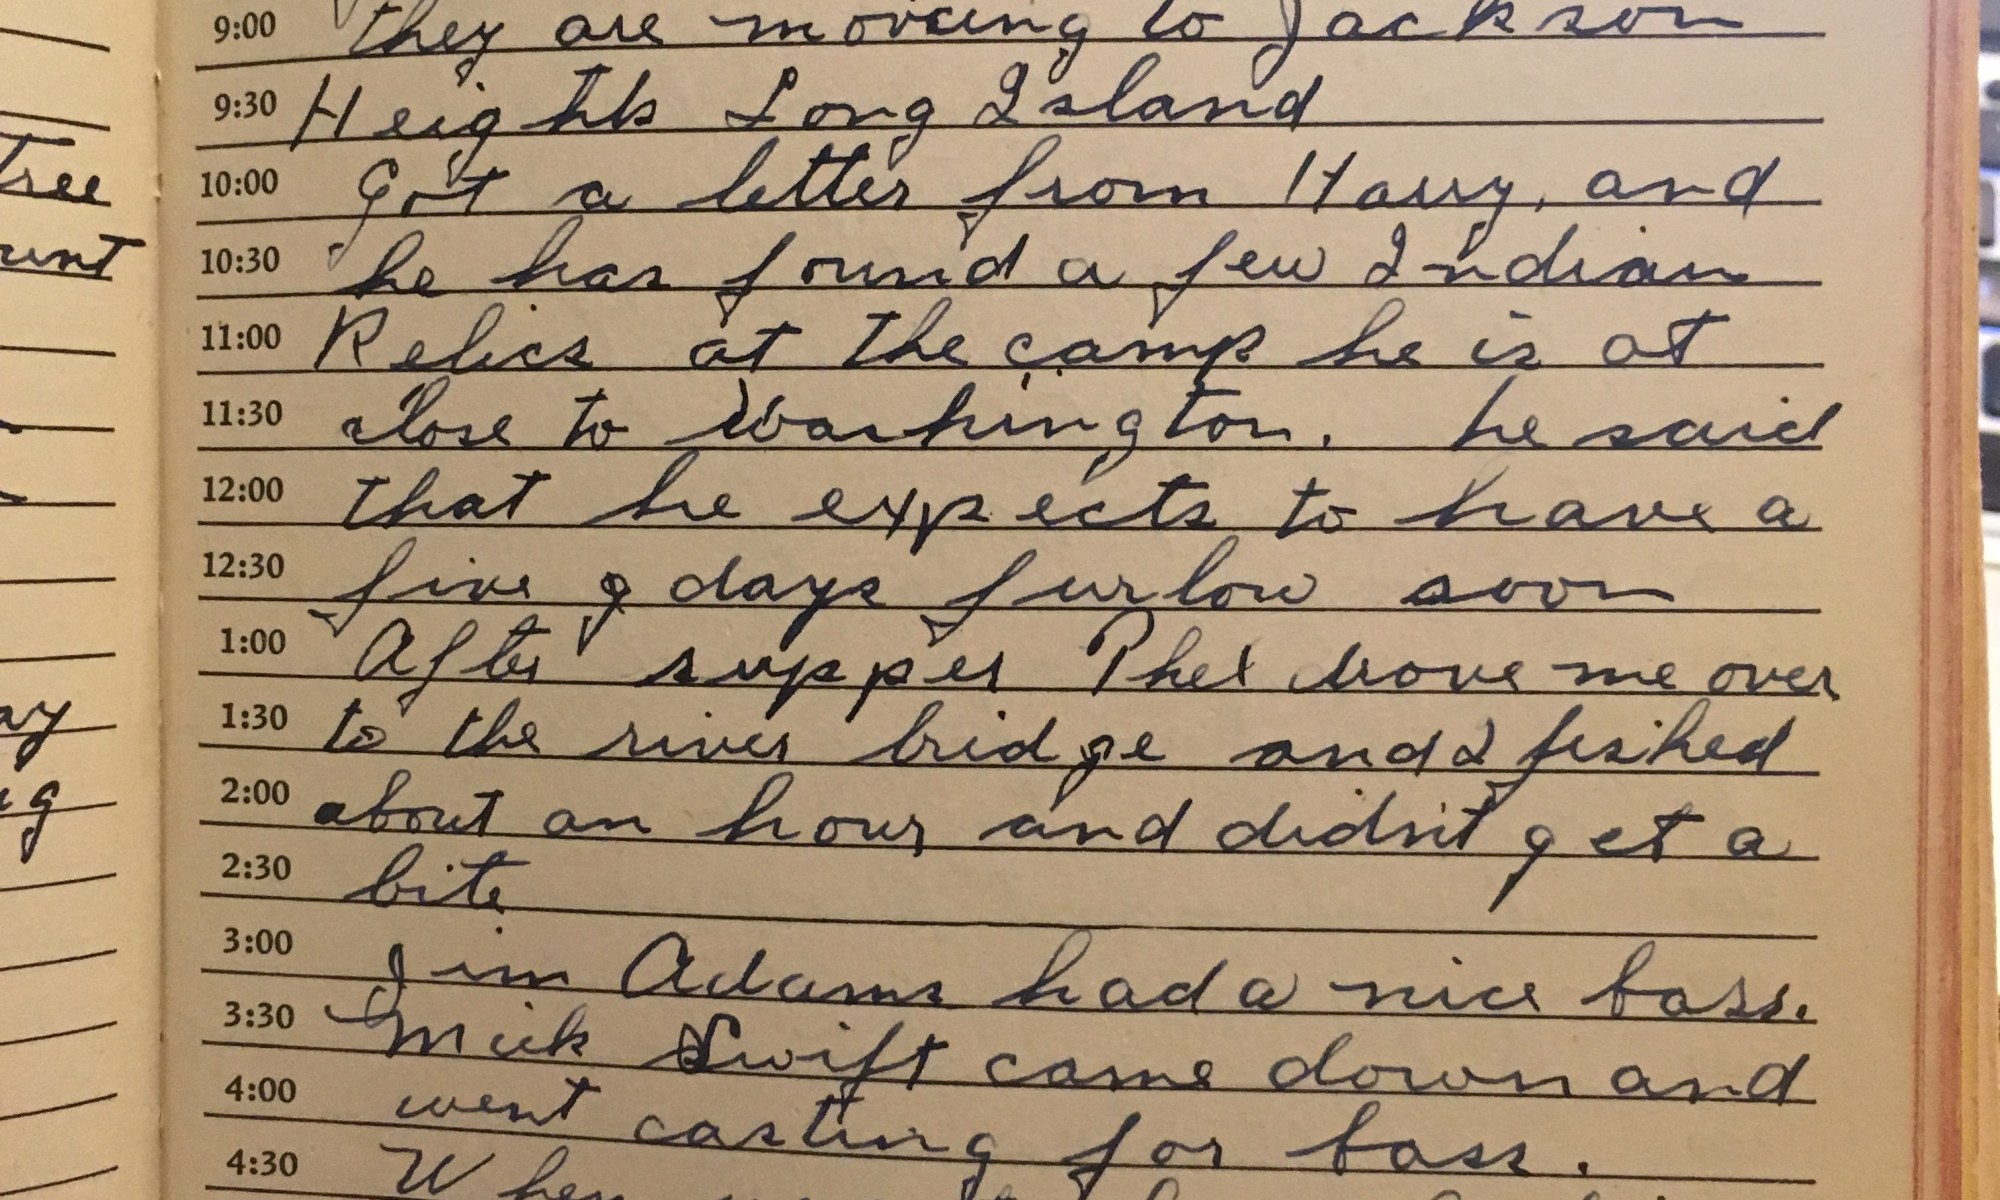 Tree
9:00 they are moveing to Jackson
9:30 Heights Long Island
10:00 Got a letter from Harry, and
10:30 he has found a few Indian
11:00 Relics at the camp he is at
11:30 close to Washington. he said
12:00 that he expects to have a
12:30 five g days furlow soon
1:00 After supper Phel drove me over
1:30 to the river bridge and I fished
2:00 about an hour and didn't get a
2:30 bite
3:00 Jim Adams had a nice bass.
3:30 Mick Swift came down and
4:00 went casting for bass.
4:30 When